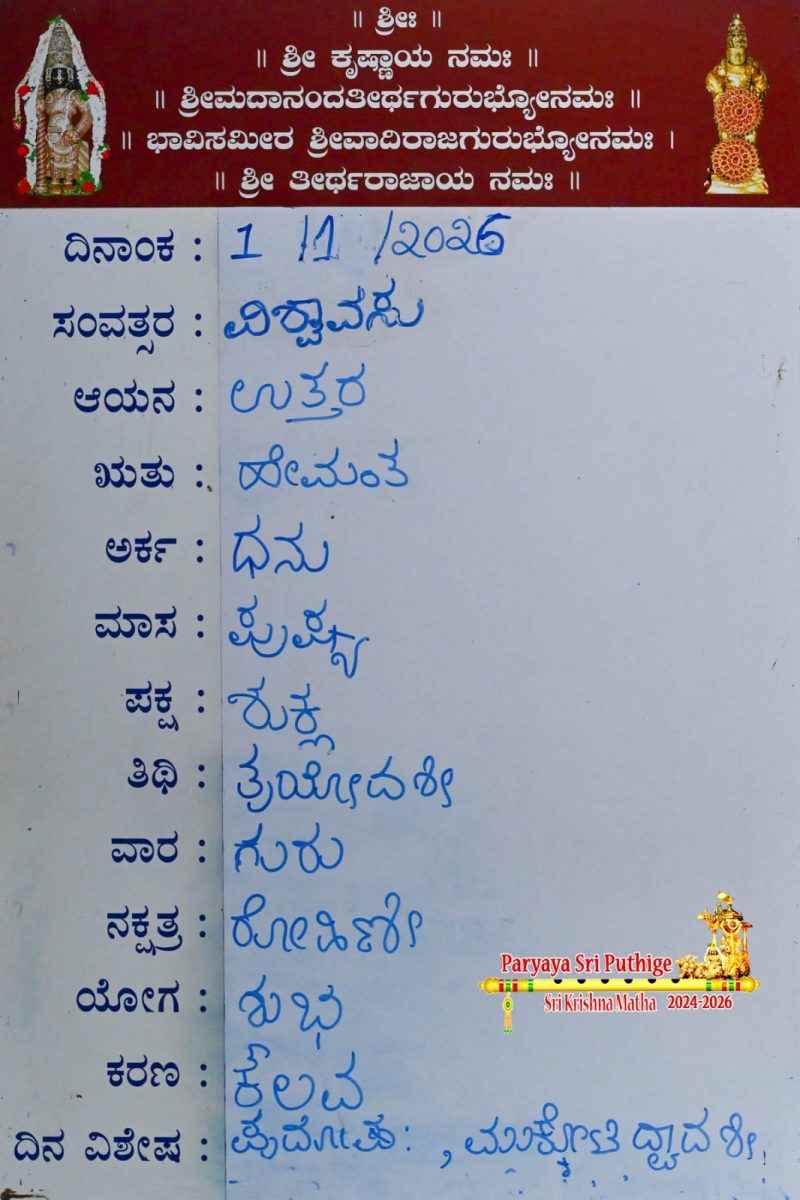 ॥ ಶ್ರೀಃ ॥
॥ ಶ್ರೀ ಕೃಷ್ಣಾಯ ನಮಃ ॥
॥ ಶ್ರೀಮದಾನಂದತೀರ್ಥಗುರುಭ್ಯೋನಮಃ ॥
॥ ಭಾವಿಸಮೀರ ಶ್ರೀವಾದಿರಾಜಗುರುಭ್ಯೋನಮಃ ।
॥ ಶ್ರೀ ತೀರ್ಥರಾಜಾಯ ನಮಃ ॥
ದಿನಾಂಕ : 1 /1 /2026
ಸಂವತ್ಸರ : ವಿಶ್ವಾವಸು
ಆಯನ : ಉತ್ತರ
ಋತು : ಹೇಮಂತ
ಅರ್ಕ : ಧನು
ಮಾಸ : ಪುಷ್ಯ
ಪಕ್ಷ : ಶುಕ್ಲ
ತಿಥಿ : ತ್ರಯೋದಶೀ
ವಾರ : ಗುರು
ನಕ್ಷತ್ರ : ರೋಹಿಣೀ
ಯೋಗ : ಶುಭ
ಕರಣ : ಕೌಲವ
ದಿನ ವಿಶೇಷ : , ಮುಕ್ಕೋಟಿ ದ್ವಾದಶೀ
Paryaya Sri Puthige
Sri Krishna Matha 2024-2026